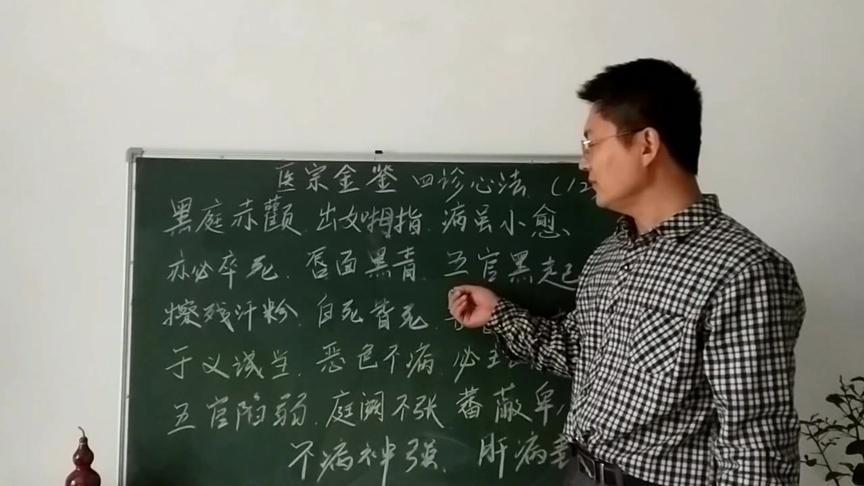 医宗金鉴 四诊心法 (12
黑庭赤颧 出如拇指 病虽小愈、
亦必卒死. 唇面黑青. 五官黑起
擦残汗粉. 白死皆死.
于义诚当. 恶色不病. 必主
五官陷弱. 庭阙不张 蕃蔽卑
不病神强. 肝病善